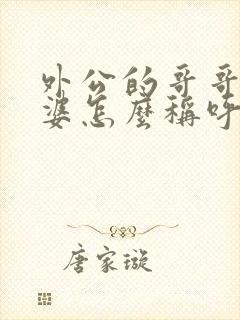 外公的哥哥
婆怎麼稱呼
唐家璇